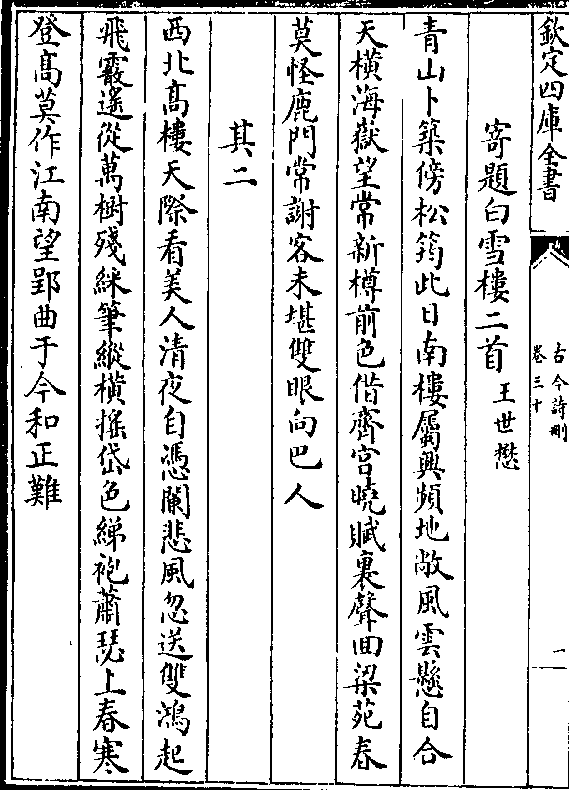 欽定四庫全書
古今詩刪
卷三十
一
寄題白雪樓二首 王世懋
青山卜築傍松筠此日南樓屬興頻地敞風雲懸自合
天橫海嶽望常新樽前色借齊宫曉賦裏聲回梁苑春
莫怪鹿門常謝客未堪雙眼向巴人
其二
西北髙樓天際看美人清夜自憑闌悲風忽送雙鴻起
飛霰遥從萬樹殘綵筆縱橫揺岱色綈袍蕭瑟上春寒
登髙莫作江南望郢曲于今和正難